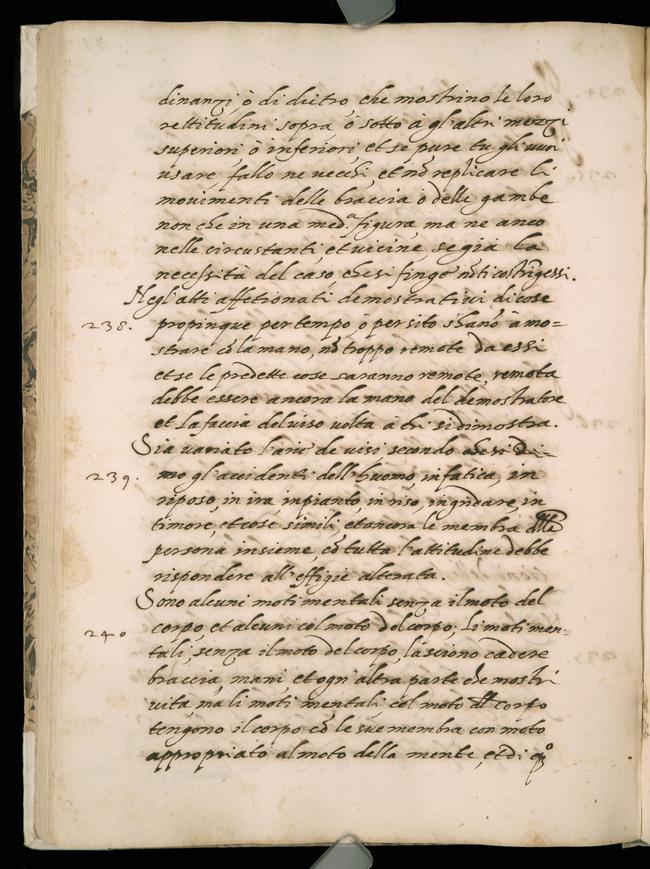 dinanzi, ò di dietro che mostrino le loro
rettitudini sopra ò sotto à gl'altri mezzi
superiori ò inferiori, et se pure tu gli vuoi
usare fallo ne vecchi, et nõ replicare li
movimenti delle braccia ò delle gambe
non che in una med.ª figura, ma ne anco
nelle circustanti, et vicine, se già la
necessità del caso che si finge nõ ti costringessi.
Negl'atti affetionati demostrativi di cose
238. propinque per tempo ò per sito s'hanò à mo=
strare cõ la mano, nõ troppo remote da essi
et se le predette cose saranno remote, remota
debbe essere ancora la mano del demostratore
et la faccia del viso volta à chi si dimostra.
Sia variato l'arie de visi secondo
239. gl'accidenti dell'huomo, in fatica, in
riposo, in ira, in pianto, in riso, in gridare, in
timore, et cose simili, et ancora le membra della
persona insieme, cõ tutta l'attitudine debbe
rispondere all'effigie alterata.
Sono alcuni moti mentali senza il moto del
240 corpo, et alcuni col moto del corpo; li moti men=
tali, senza il moto del corpo, lasciono cadere
braccia, mani, et ogn'altra parte che mostri
vita, ma li moti mentali col moto del corpo
tengono il corpo cõ le sue membra con moto
appropriato al moto della mente, et di q.º